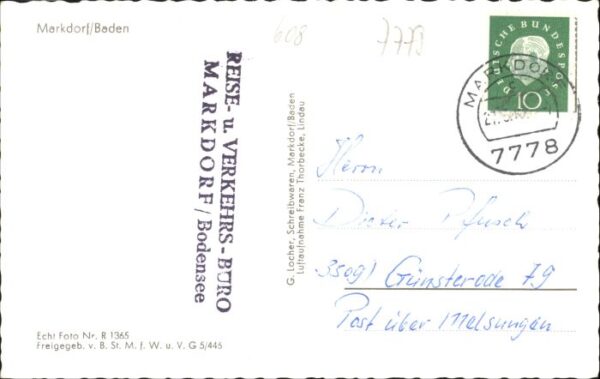 Markdorf/Baden
608
7778
DEUTSCHE BUNDESPOST
10
MARKDORF
7778
REISE- u. VERKEHRS-BÜRO
MARKDORF / Bodensee
G. Locher, Schreibwaren, Markdorf/Baden
Luftaufnahme Franz Thorbecke, Lindau
Herrn
Dieter Pfusch
35091 Günsterode 79
Post über Melsungen
Echt Foto Nr. R 1365
Freigegeb. v. B. St. M. f. W. u. V. G 5/445